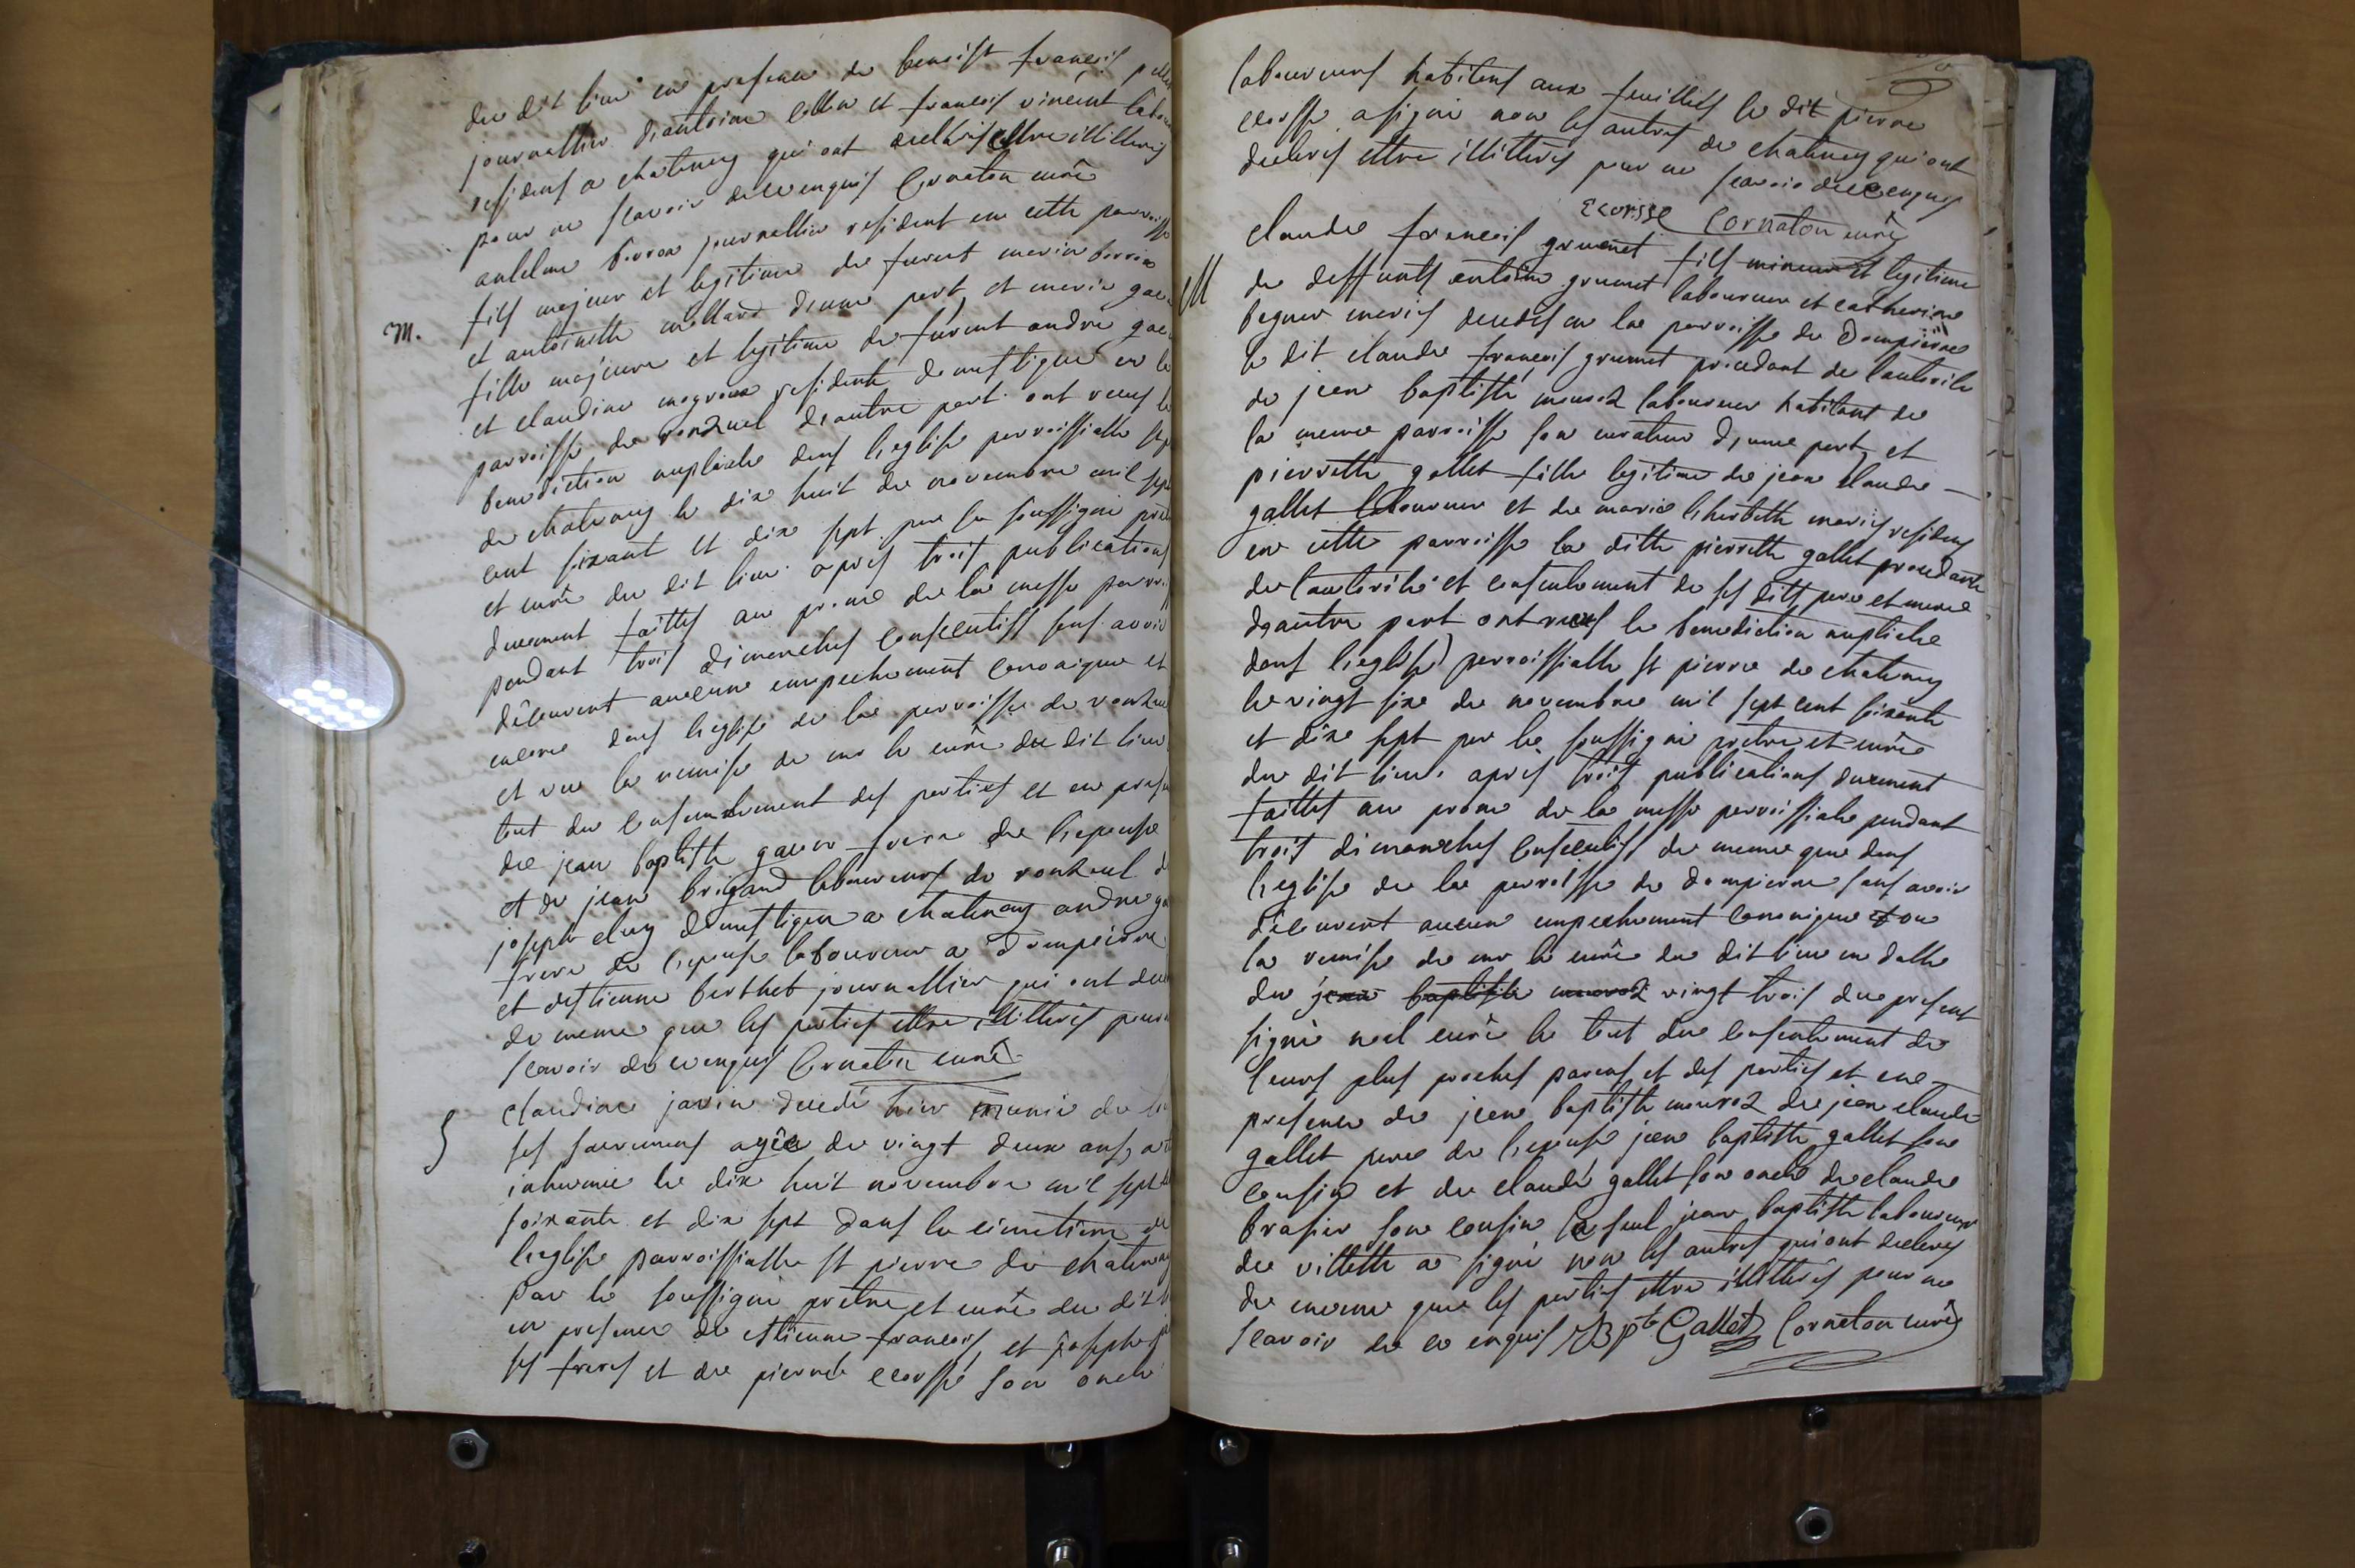 du dit lieu en presence de benoist françois
journallier d'antoine collin et françois vincent
residens a chatenay qui ont declarés ettre illitterés
pour ne scavoir de ce enquis Cornaton curé
m.
antelme borron journallier resident en cette parroisse
fils majeur et legitime de furent marin borron
et antoinette mollard d'une part, et marie
fille majeure et legitime de furent andré
et claudine mogroux residente domestique en la
parroisse de ronzuel d'autre part ont reçus la
benediction nuptiale dans l'eglise parroissialle st
de chatenay le dix huit de novembre mil sept
cent soixant et dix sept par le soussigné
et curé du dit lieu apres trois publications
duement faittes au prone de la messe
pendant trois dimenches consecutifs sans avoir
découvert aucune empechement canonique et
meme dans l'eglise de la parroisse de
et vu la remise de mr le curé du dit lieu
tout du consentement des parties et en
de jean baptiste frere de l'epouse
et de jean brigand laboureurs de ronzuel
joseph domestique a chatenay andre
frere de l'epouse laboureur a dompierre
et estienne berthet journallier qui ont
de meme que les parties ettre illitterés pour
scavoir de ce enquis Cornaton curé
S
Claudine javin decedé hier munie de
ses sacremens agée de vingt deux ans, a
inhumée le dix huit novembre mil sept
soixante et dix sept dans le cimetiere de
l'eglise parroissialle st pierre de chatenay
par le soussigné pretre et curé du dit
en presence de estienne françois, et joseph
ses freres et de pierre ecorsse son oncle
laboureurs habitens aux feuillets le dit pierre
ecorsse a signé non les autres de chatenay qui ont
declarés ettre illitterés pour ne scavoir de ce enquis
Ecorsse Cornaton curé
M
Claude françois grumet fils mineur et legitime
de deffunts antoine grumet laboureur et catherine
beguer mariés decedés en la parroisse de Dompierre
le dit claude françois grumet procedant de l'autorité
de jean baptiste moiroz laboureur habitant de
la meme parroisse son curateur d'une part, et
pierrette gallet fille legitime de jean claude
gallet laboureur et de marie mariés residens
en cette parroisse la ditte pierrette gallet procedante
de l'autorité et consentement de ses dits pere et mere
d'autre part ont reçus la benediction nuptiale
dans l'eglise parroissialle st pierre de chatenay
le vingt six de novembre mil sept cent soixante
et dix sept par le soussigné pretre et curé
du dit lieu apres trois publications duement
faittes au prone de la messe parroissiale pendant
trois dimanches consecutifs de meme que dans
l'eglise de la parroisse de dompierre sans avoir
découvert aucun empechement canonique
la remise de mr le curé du dit lieu en datte
du jean baptiste moiroz vingt trois du present
signé curé le tout du consentement de
leurs plus proches parens et des parties et en
presence de jean baptiste moiroz de jean claude
gallet pere de l'epouse jean baptiste gallet son
cousin et de claude gallet son oncle de claude
brasier son cousin le seul jean baptiste laboureur
de villette a signé non les autres qui ont declarés
de meme que les parties ettre illitterés pour ne
scavoir de ce enquis JBpte Gallet Cornaton curé